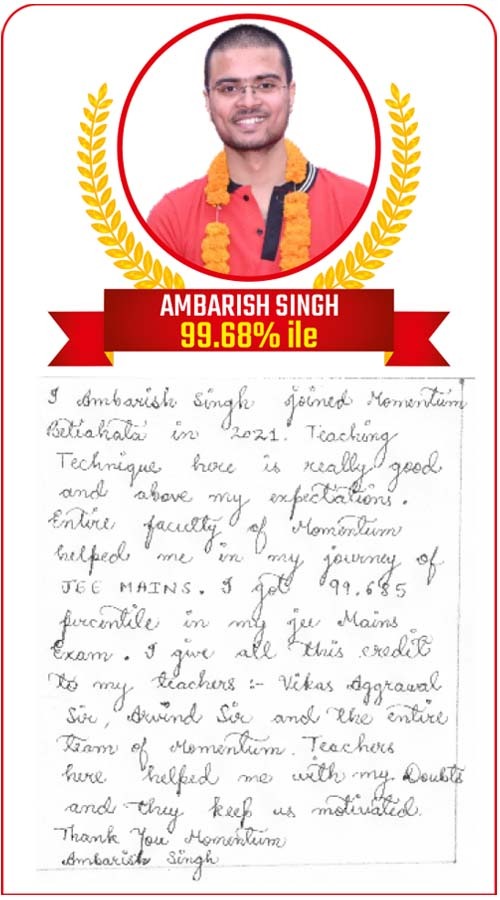 AMBARISH SINGH
99.68% ile
I Ambarish Singh joined Momentum
Betiahata in 2021. Teaching
Technique here is really good
and above my expectations.
Entire faculty of Momentum
helped me in my journey of
JEE MAINS. I got 99.685
percentile in my jee Mains
Exam. I give all this credit
to my teachers :- Vikas Aggrawal
Sir, Arvind Sir and the entire
team of Momentum. Teachers
here helped me with my Doubts
and they keep us motivated.
Thank You Momentum
Ambarish Singh